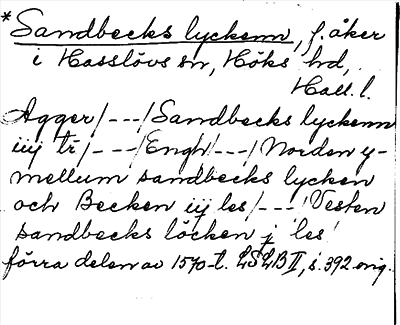 *Sandbecks lyckenn, f. åker
i Hasslövs sn, Höks hd,
Hall. l.
Agger/---/Sandbecks lyckenn
iiij tr/---/Engh/---/Norden y-
mellum sandbecks lycken
och Becken iij les/---/Vesten
sandbecks löcken j les
förra delen av 1570-t. LSLB II, s. 392 orig.